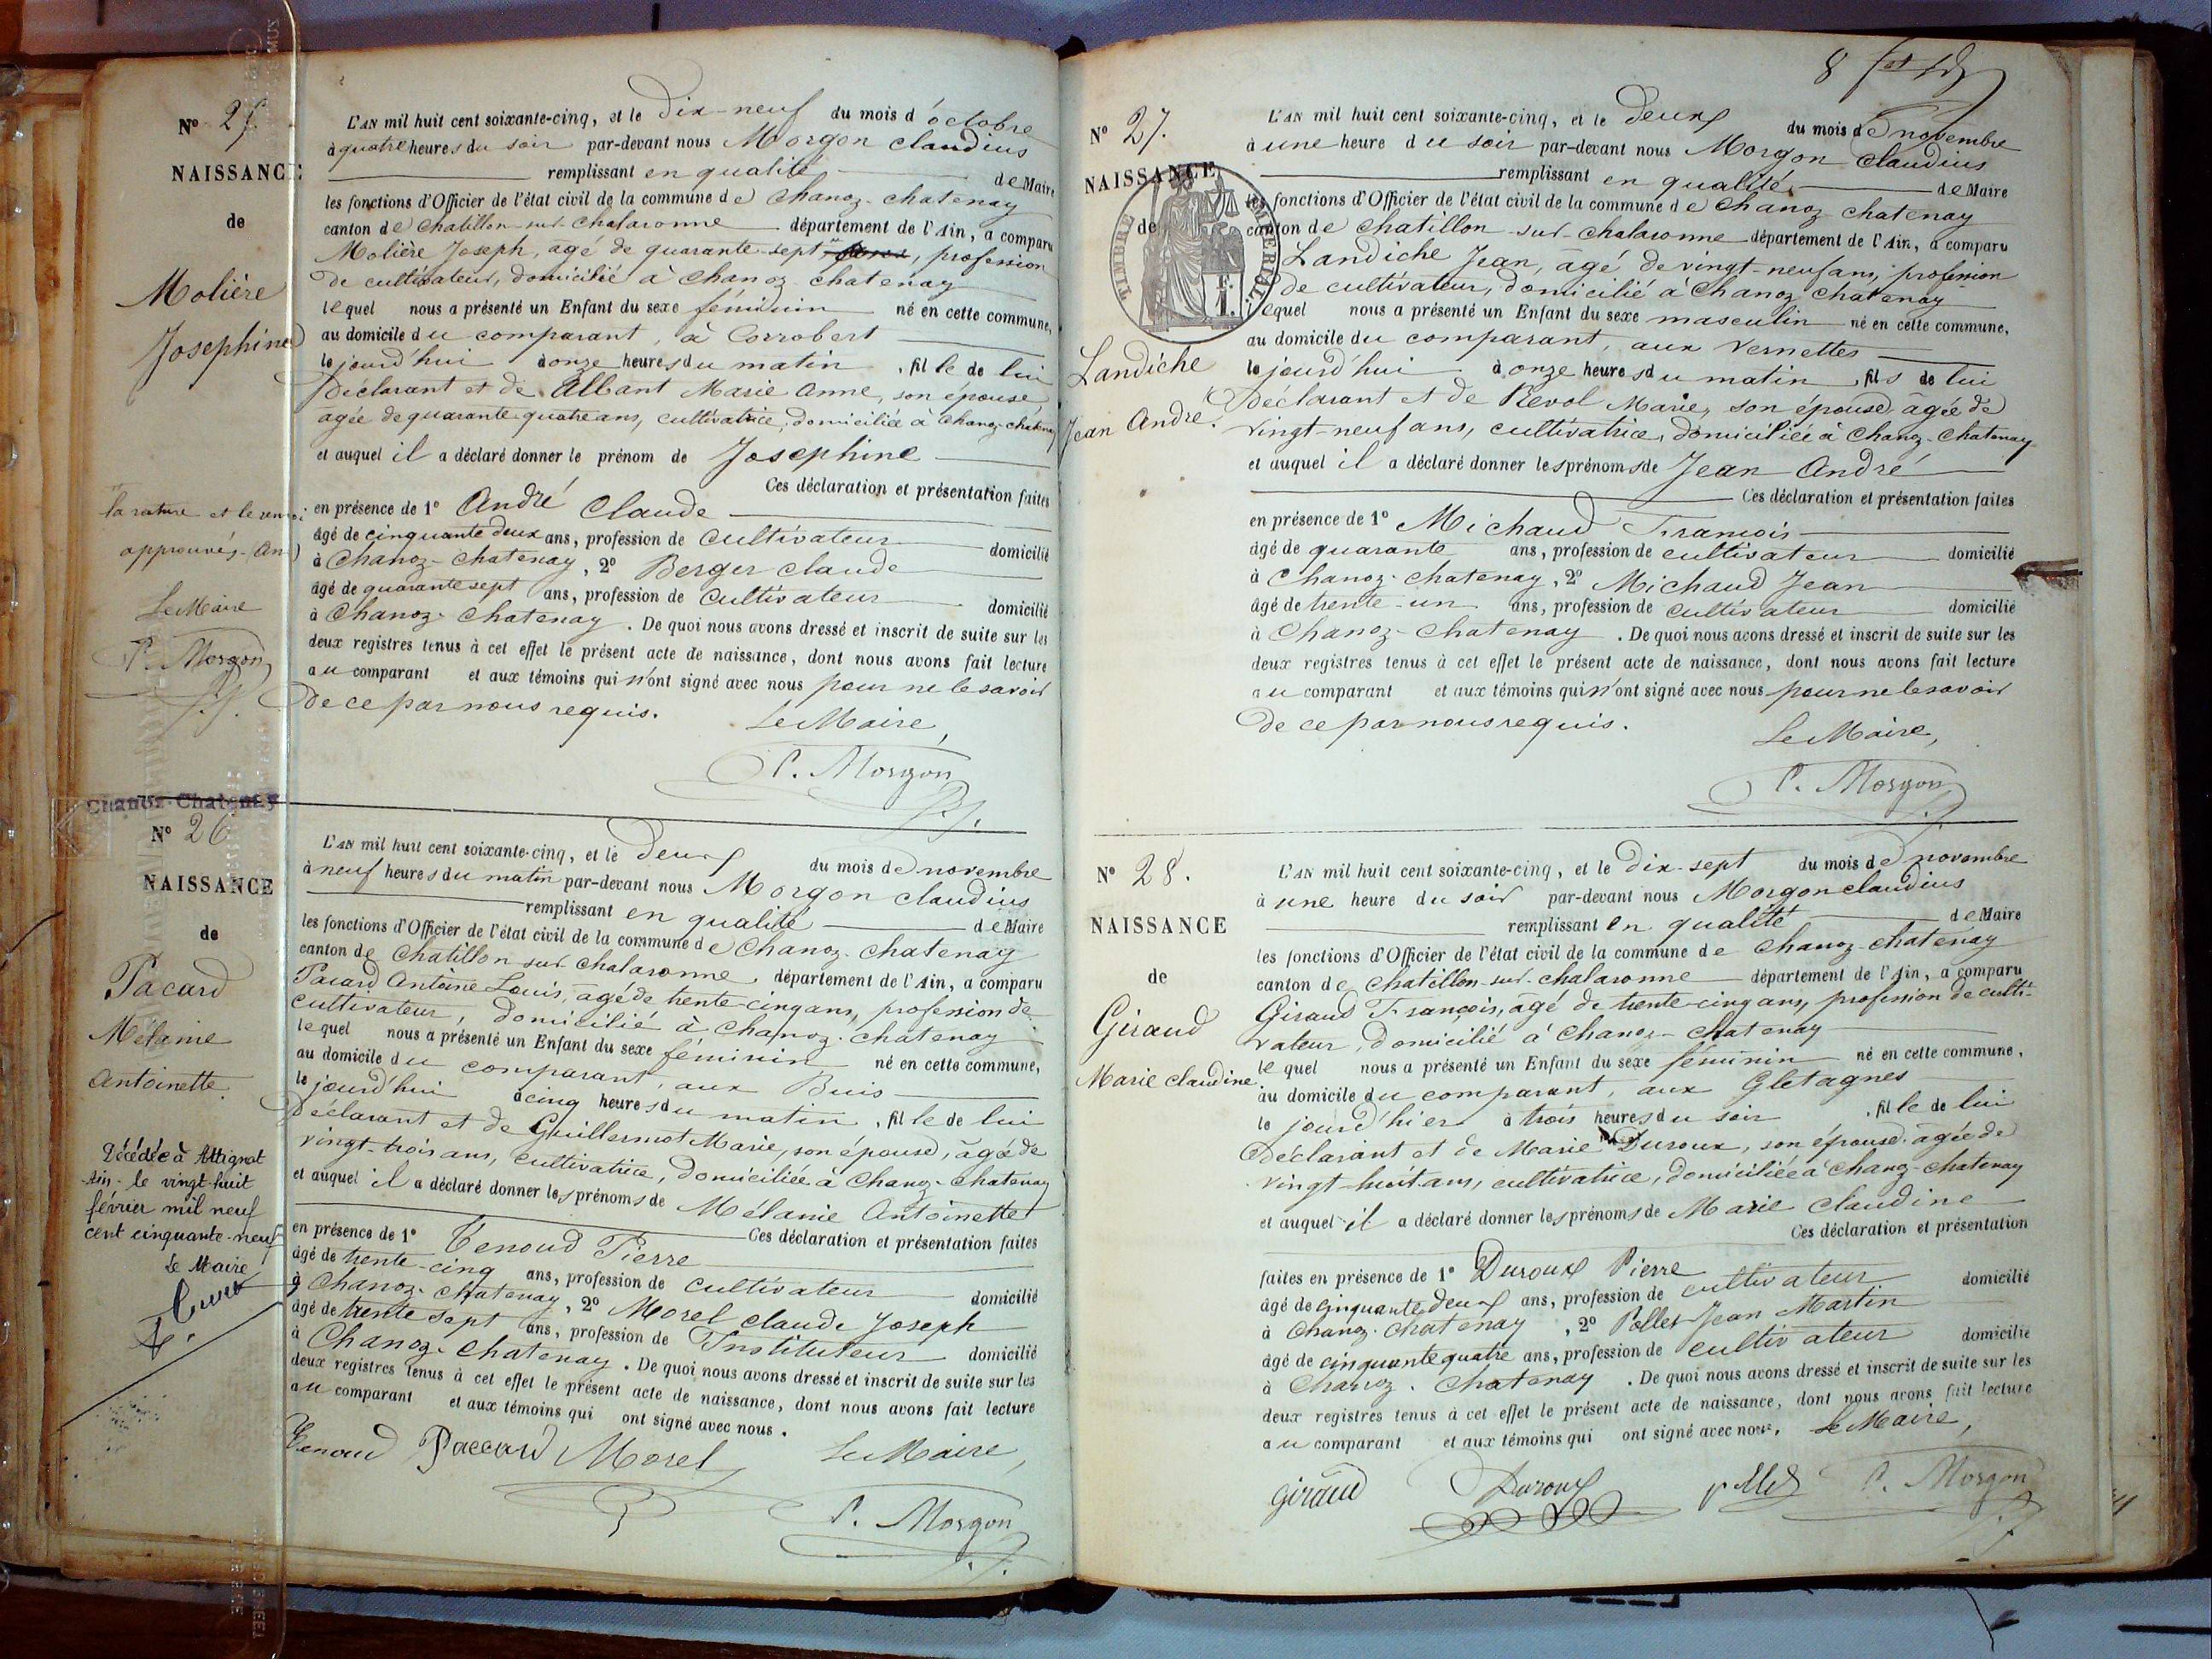 N° 25
NAISSANCE
de
Molière
Josephine
la rature et le renvoi
approuvés.
Le Maire
C. Morgon
L'AN mil huit cent soixante-cinq, et le dix-neuf du mois d'octobre
à quatre heures du soir par-devant nous Morgon Claudius
remplissant en qualité de Maire
les fonctions d'Officier de l'état civil de la commune de Chanoz-Chatenay
canton de Chatillon-sur-Chalaronne département de l'Ain, a comparu
Molière Joseph, agé de quarante-sept, profession
de cultivateur, domicilié à Chanoz-Chatenay
lequel nous a présenté un Enfant du sexe féminin né en cette commune,
au domicile du comparant, à Corrobert
le jourd'hui à onze heures du matin, fille de lui
Déclarant et de Albant Marie Anne, son épouse
agée de quarante-quatre ans, cultivatrice, domiciliée à Chanoz-Chatenay
et auquel il a déclaré donner le prénom de Josephine
Ces déclaration et présentation faites
en présence de 1° André Claude
âgé de cinquante deux ans, profession de Cultivateur domicilié
à Chanoz-Chatenay, 2° Berger Claude
âgé de quarante sept ans, profession de Cultivateur domicilié
à Chanoz-Chatenay. De quoi nous avons dressé et inscrit de suite sur les
deux registres tenus à cet effet le présent acte de naissance, dont nous avons fait lecture
au comparant et aux témoins qui n'ont signé avec nous pour ne le savoir
De ce par nous requis. Le Maire,
C. Morgon
Chanoz-Chatenay
N° 26
NAISSANCE
de
Pacard
Mélanie
Antoinette.
Décédée à Attignat
Ain - le vingt huit
février mil neuf
cent cinquante-neuf
Le Maire
L'AN mil huit cent soixante-cinq, et le deux du mois de novembre
à neuf heures du matin par-devant nous Morgon Claudius
remplissant en qualité de Maire
les fonctions d'Officier de l'état civil de la commune de Chanoz-Chatenay
canton de Chatillon-sur-Chalaronne, département de l'Ain, a comparu
Pacard Antoine Louis, agé de trente-cinq ans, profession de
cultivateur, domicilié à Chanoz-Chatenay
lequel nous a présenté un Enfant du sexe féminin né en cette commune,
au domicile du comparant, aux Buis
le jourd'hui à cinq heures du matin, fille de lui
Déclarant et de Guillermot Marie, son épouse, agée de
vingt-trois ans, cultivatrice, domiciliée à Chanoz-Chatenay
et auquel il a déclaré donner les prénoms de Mélanie Antoinette
Ces déclaration et présentation faites
en présence de 1° Tenoud Pierre
âgé de trente-cinq ans, profession de cultivateur domicilié
à Chanoz-Chatenay, 2° Morel Claude Joseph
âgé de trente sept ans, profession de Instituteur domicilié
à Chanoz-Chatenay. De quoi nous avons dressé et inscrit de suite sur les
deux registres tenus à cet effet le présent acte de naissance, dont nous avons fait lecture
au comparant et aux témoins qui ont signé avec nous.
Tenoud Paccard Morel Le Maire,
C. Morgon
8
N° 27.
NAISSANCE
de
TIMBRE IMPERIAL
Landiche
Jean André.
L'AN mil huit cent soixante-cinq, et le deux du mois de novembre
à une heure du soir par-devant nous Morgon Claudius
remplissant en qualité de Maire
les fonctions d'Officier de l'état civil de la commune de Chanoz-Chatenay
canton de Chatillon-sur-Chalaronne département de l'Ain, a comparu
Landiche Jean, agé de vingt-neuf ans, profession
de cultivateur, domicilié à Chanoz-Chatenay
lequel nous a présenté un Enfant du sexe masculin né en cette commune,
au domicile du comparant, aux Vernettes
le jourd'hui à onze heures du matin, fils de lui
Déclarant et de Revol Marie, son épouse, agée de
vingt-neuf ans, cultivatrice, domiciliée à Chanoz-Chatenay
et auquel il a déclaré donner les prénoms de Jean André
Ces déclaration et présentation faites
en présence de 1° Michaud François
âgé de quarante ans, profession de cultivateur domicilié
à Chanoz-Chatenay, 2° Michaud Jean
âgé de trente-un ans, profession de cultivateur domicilié
à Chanoz-Chatenay. De quoi nous avons dressé et inscrit de suite sur les
deux registres tenus à cet effet le présent acte de naissance, dont nous avons fait lecture
au comparant et aux témoins qui n'ont signé avec nous pour ne le savoir
De ce par nous requis. Le Maire,
C. Morgon
N° 28.
NAISSANCE
de
Giraud
Marie Claudine.
L'AN mil huit cent soixante-cinq, et le dix-sept du mois de novembre
à une heure du soir par-devant nous Morgon Claudius
remplissant en qualité de Maire
les fonctions d'Officier de l'état civil de la commune de Chanoz-Chatenay
canton de Chatillon-sur-Chalaronne département de l'Ain, a comparu
Giraud François, agé de trente-cinq ans, profession de culti-
vateur, domicilié à Chanoz-Chatenay
lequel nous a présenté un Enfant du sexe féminin né en cette commune,
au domicile du comparant, aux Gletagnes
le jour d'hier à trois heures du soir, fille de lui
Déclarant et de Marie Duroux, son épouse agée de
vingt-huit ans, cultivatrice, domiciliée à Chanoz-Chatenay
et auquel il a déclaré donner les prénoms de Marie Claudine
Ces déclaration et présentation
faites en présence de 1° Duroux Pierre
âgé de cinquante deux ans, profession de cultivateur domicilié
à Chanoz-Chatenay, 2° Pollet Jean Martin
âgé de cinquante quatre ans, profession de cultivateur domicilié
à Chanoz-Chatenay. De quoi nous avons dressé et inscrit de suite sur les
deux registres tenus à cet effet le présent acte de naissance, dont nous avons fait lecture
au comparant et aux témoins qui ont signé avec nous, Le Maire,
giraud Duroux pollet C. Morgon